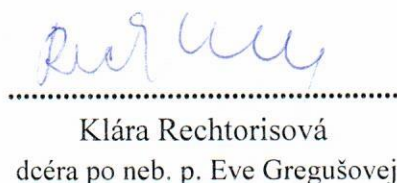 Klára Rechtorisová
dcéra po neb. p. Eve Gregušovej